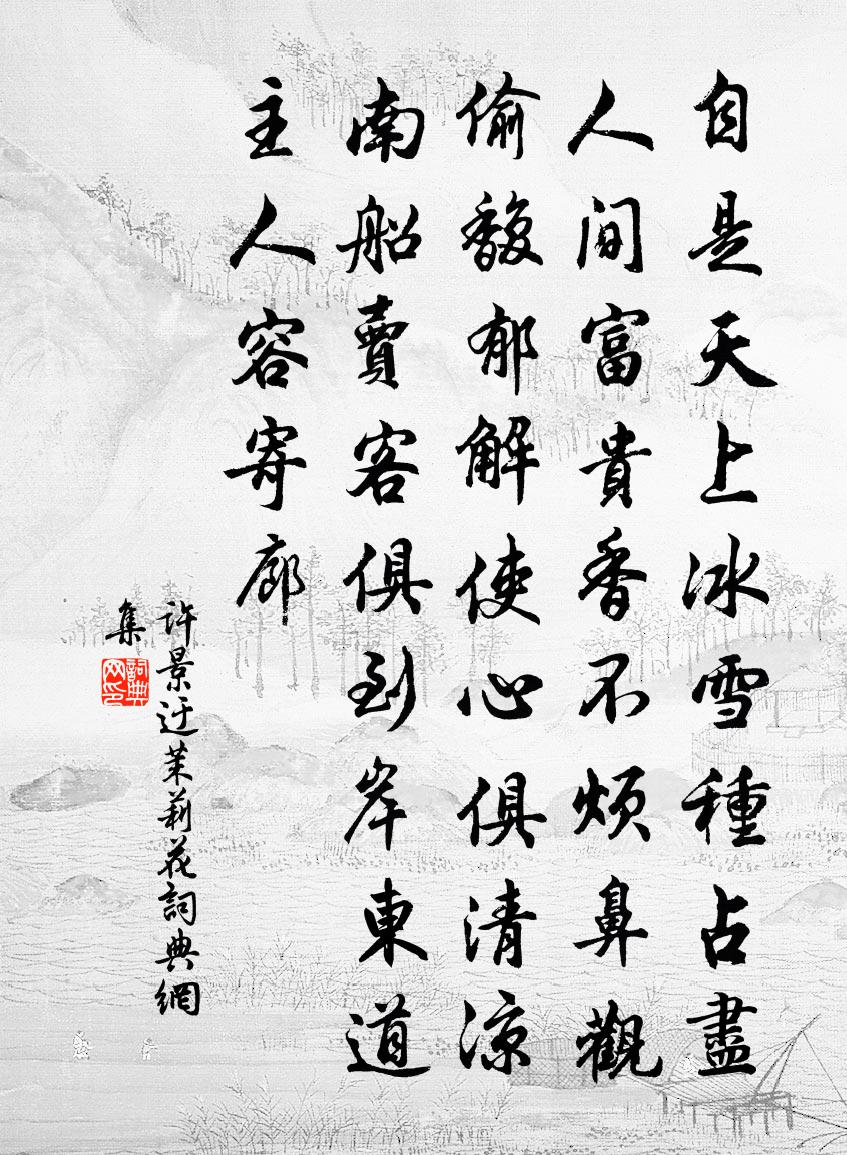 自是天上冰雪種占盡
人間富貴香不煩鼻觀
偷馥郁解使心俱清涼
南船賣客俱到岸東道
主人容寄廊
許景迂茉莉花詞典網
集
詞典
网印